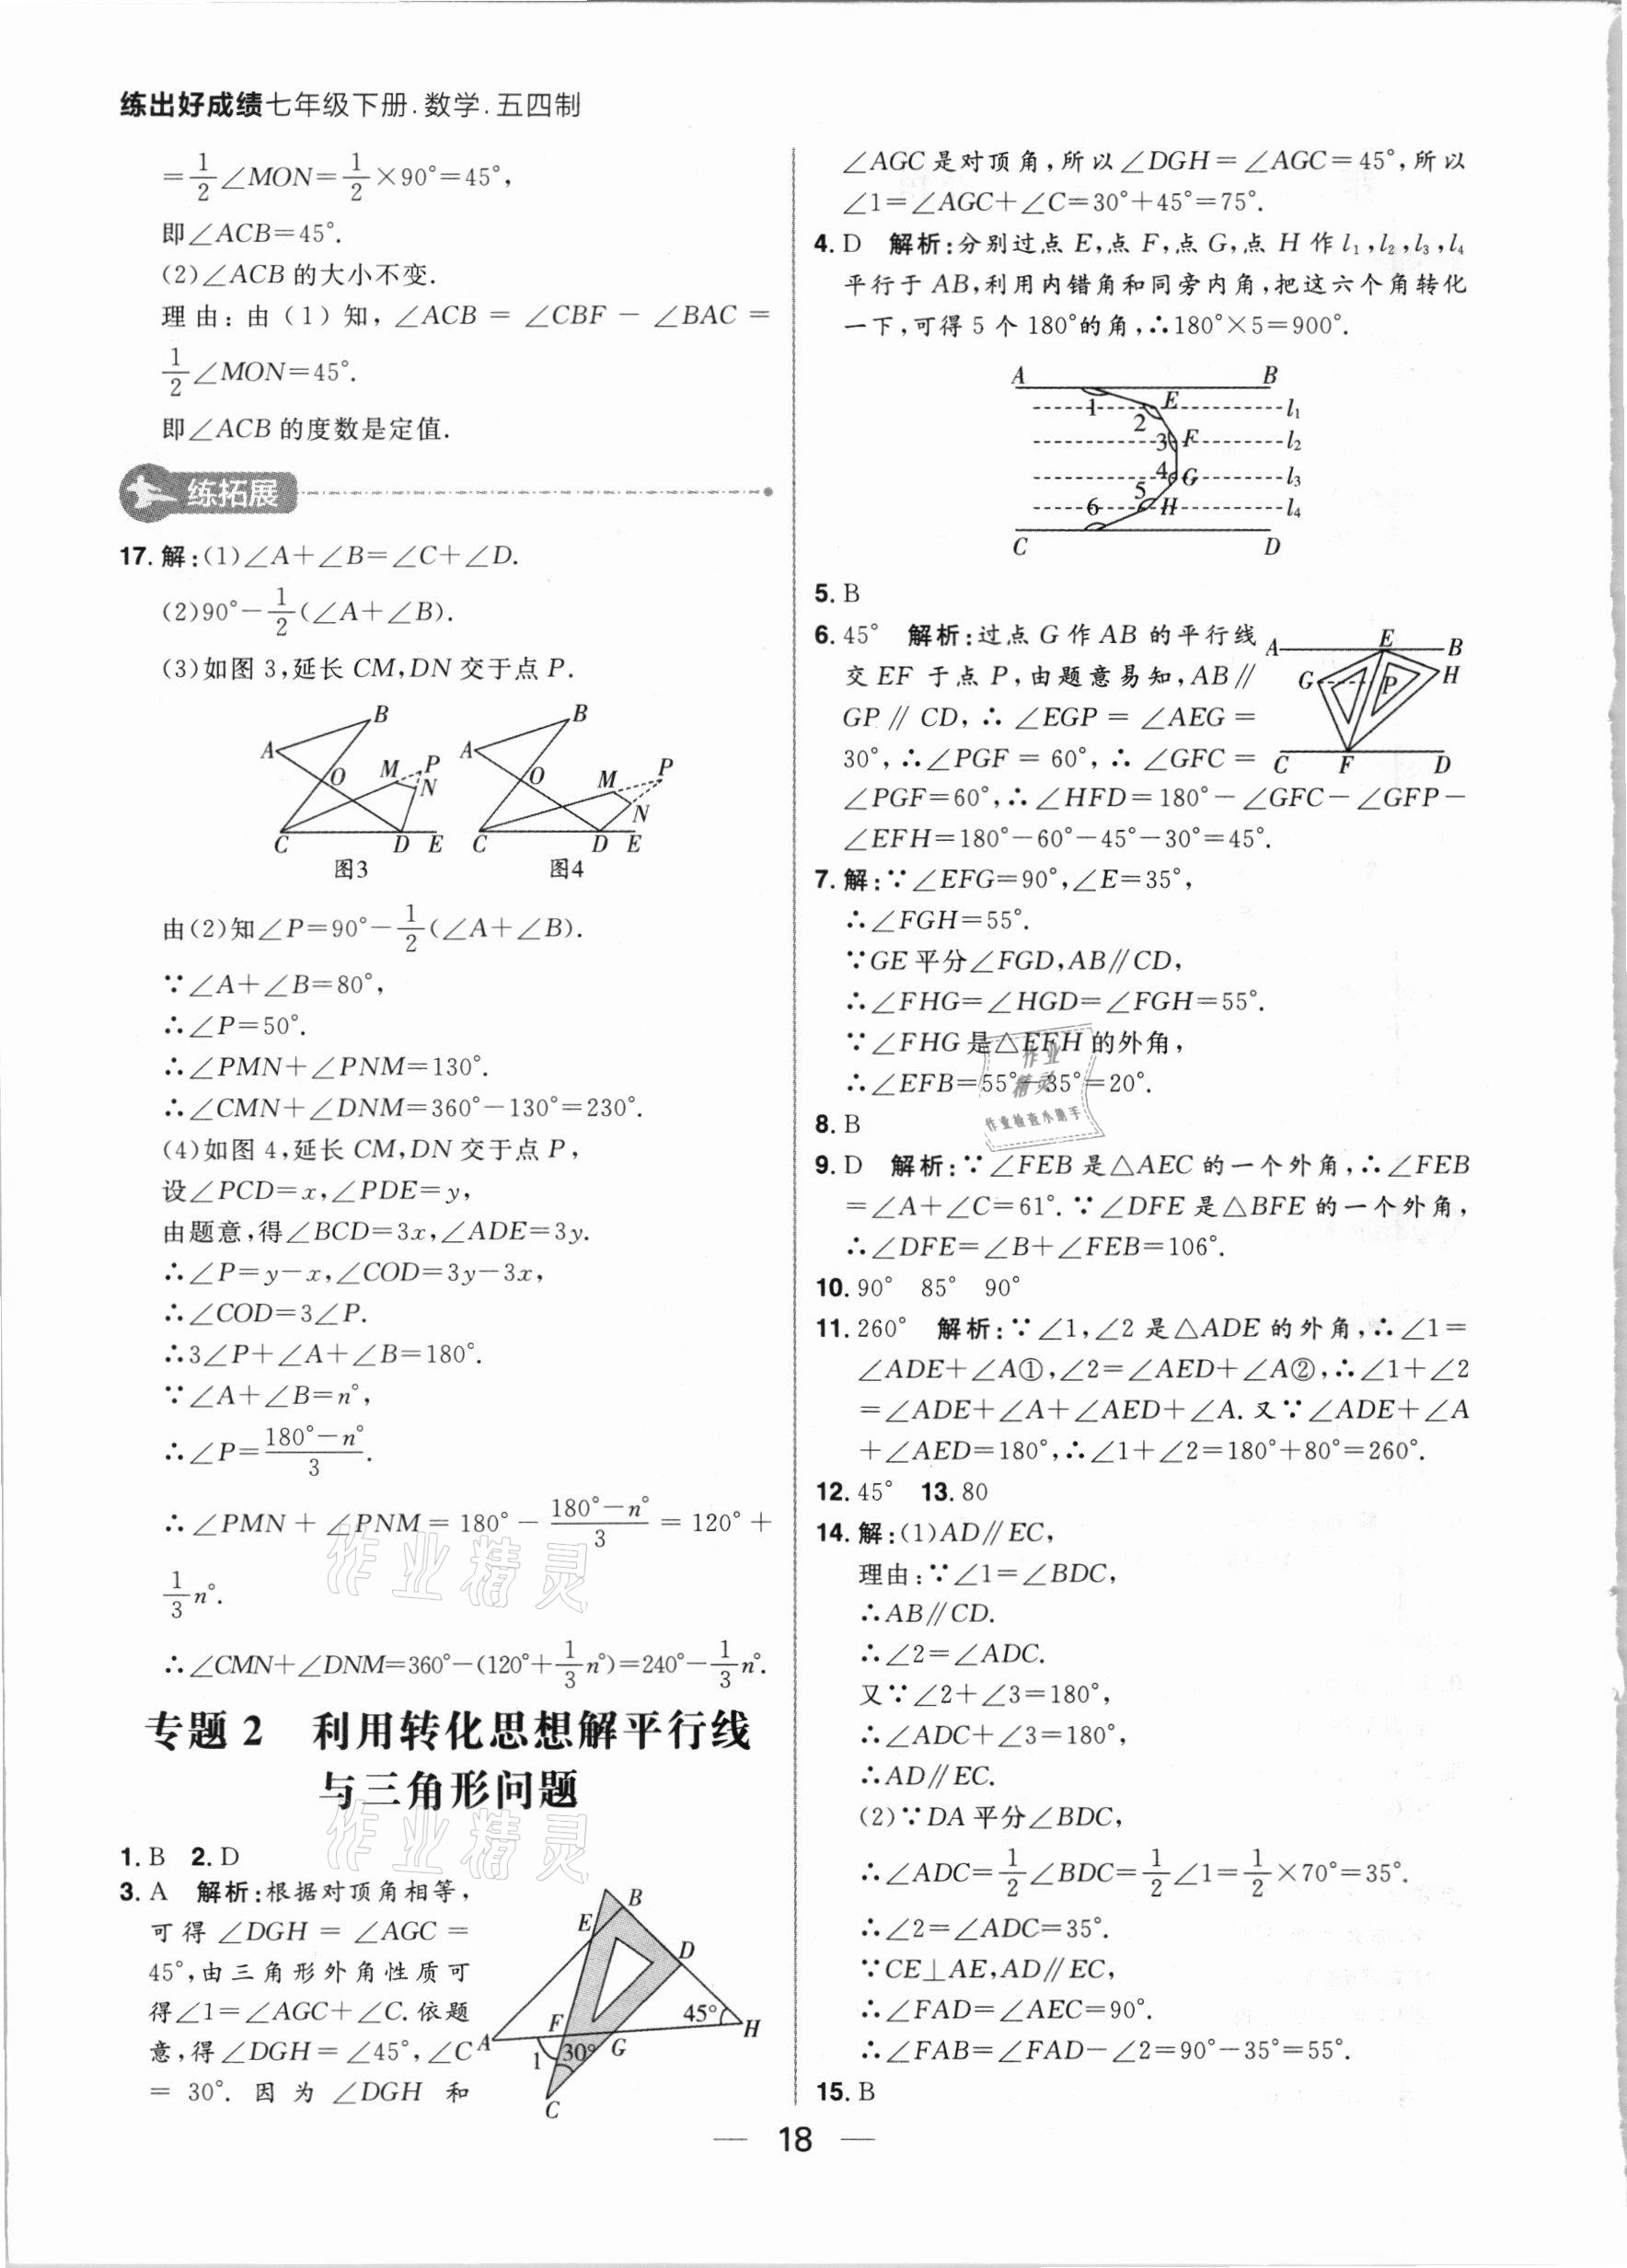 练出好成绩七年级下册.数学.五四制
=1/2∠MON=1/2×90°=45°,
即∠ACB=45°.
(2)∠ACB的大小不变.
理由:由(1)知,∠ACB=∠CBF-∠BAC=
1/2∠MON=45°.
即∠ACB的度数是定值.
练拓展
17.解:(1)∠A+∠B=∠C+∠D.
(2)90°-1/2(∠A+∠B).
(3)如图3,延长CM,DN交于点P.
A B O M P N C D E
A B O M P N C D E
图3 图4
由(2)知∠P=90°-1/2(∠A+∠B).
∵∠A+∠B=80°,
∴∠P=50°.
∴∠PMN+∠PNM=130°.
∴∠CMN+∠DNM=360°-130°=230°.
(4)如图4,延长CM,DN交于点P,
设∠PCD=x,∠PDE=y,
由题意,得∠BCD=3x,∠ADE=3y.
∴∠P=y-x,∠COD=3y-3x,
∴∠COD=3∠P.
∴3∠P+∠A+∠B=180°.
∵∠A+∠B=n°,
∴∠P=(180°-n°)/3.
∴∠PMN+∠PNM=180°-(180°-n°)/3=120°+
1/3n°.
∴∠CMN+∠DNM=360°-(120°+1/3n°)=240°-1/3n°.
作业精灵
专题2 利用转化思想解平行线
与三角形问题
作业精灵
1.B 2.D
3.A 解析:根据对顶角相等,
可得∠DGH=∠AGC=
45°,由三角形外角性质可
得∠1=∠AGC+∠C.依题
意,得∠DGH=∠45°,∠C
=30°.因为∠DGH和
B E D 45° H A F G 1 30° C
∠AGC是对顶角,所以∠DGH=∠AGC=45°,所以
∠1=∠AGC+∠C=30°+45°=75°.
4.D 解析:分别过点E,点F,点G,点H作l₁,l₂,l₃,l₄
平行于AB,利用内错角和同旁内角,把这六个角转化
一下,可得5个180°的角,∴180°×5=900°.
A B
1 E l₁
2
3 F l₂
4 G l₃
5
6 H l₄
C D
5.B
6.45° 解析:过点G作AB的平行线
交EF于点P,由题意易知,AB∥
GP∥CD,∴∠EGP=∠AEG=
30°,∴∠PGF=60°,∴∠GFC=
∠PGF=60°,∴∠HFD=180°-∠GFC-∠GFP-
∠EFH=180°-60°-45°-30°=45°.
A E B
G P H
C F D
7.解:∵∠EFG=90°,∠E=35°,
∴∠FGH=55°.
∵GE平分∠FGD,AB∥CD,
∴∠FHG=∠HGD=∠FGH=55°.
∵∠FHG是△EFH的外角,
∴∠EFB=55°-35°=20°.
作业
精灵
作业检查小助手
8.B
9.D 解析:∵∠FEB是△AEC的一个外角,∴∠FEB
=∠A+∠C=61°.∵∠DFE是△BFE的一个外角,
∴∠DFE=∠B+∠FEB=106°.
10.90° 85° 90°
11.260° 解析:∵∠1,∠2是△ADE的外角,∴∠1=
∠ADE+∠A①,∠2=∠AED+∠A②,∴∠1+∠2
=∠ADE+∠A+∠AED+∠A.又∵∠ADE+∠A
+∠AED=180°,∴∠1+∠2=180°+80°=260°.
12.45° 13.80
14.解:(1)AD∥EC,
理由:∵∠1=∠BDC,
∴AB∥CD.
∴∠2=∠ADC.
又∵∠2+∠3=180°,
∴∠ADC+∠3=180°,
∴AD∥EC.
(2)∵DA平分∠BDC,
∴∠ADC=1/2∠BDC=1/2∠1=1/2×70°=35°.
∴∠2=∠ADC=35°.
∵CE⊥AE,AD∥EC,
∴∠FAD=∠AEC=90°.
∴∠FAB=∠FAD-∠2=90°-35°=55°.
15.B
— 18 —